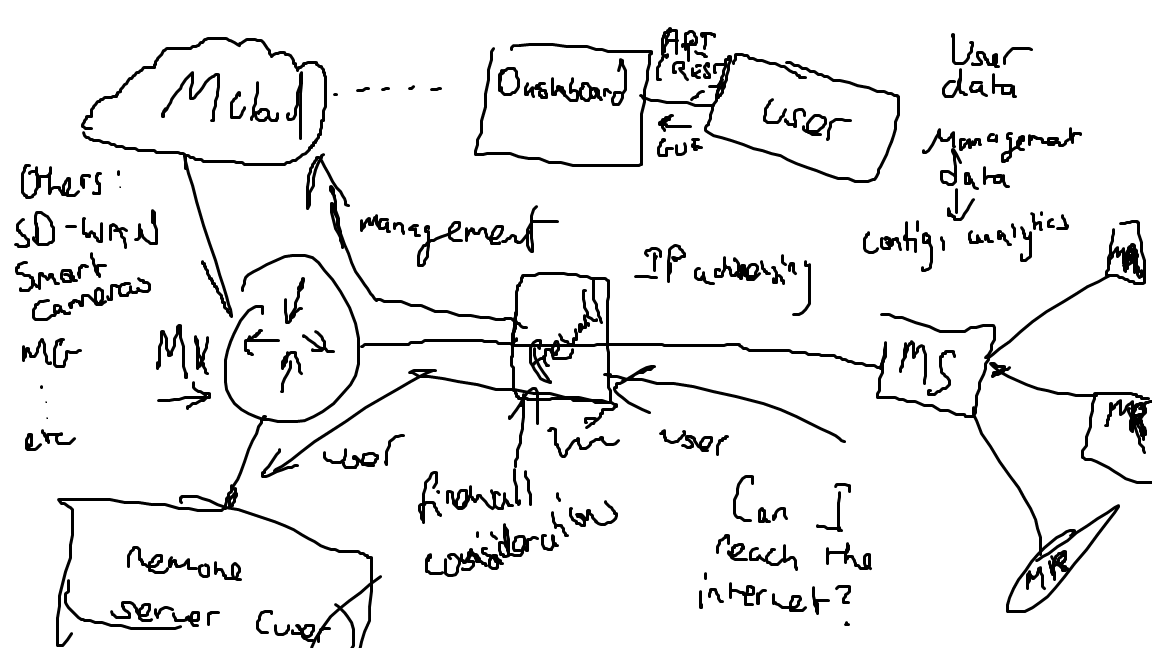 M cloud
Dashboard
API
(REST
GUI
user
User
data
Management
data
config, analytics
Others:
SD-WAN
Smart
cameras
MG
etc
management
IP addressing
MX
firewall
MS
MR
MR
MR
user
user
firewall
considerations
Can I
reach the
internet?
Remote
server (user